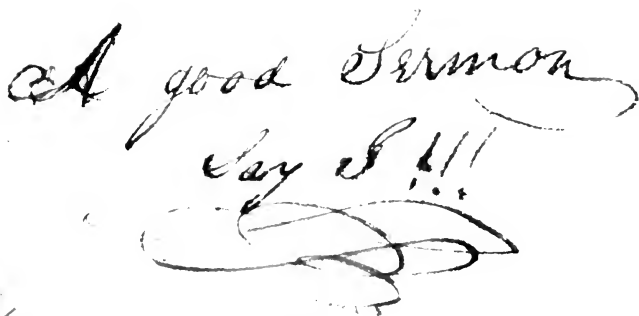 A good Sermon
Say I!!!